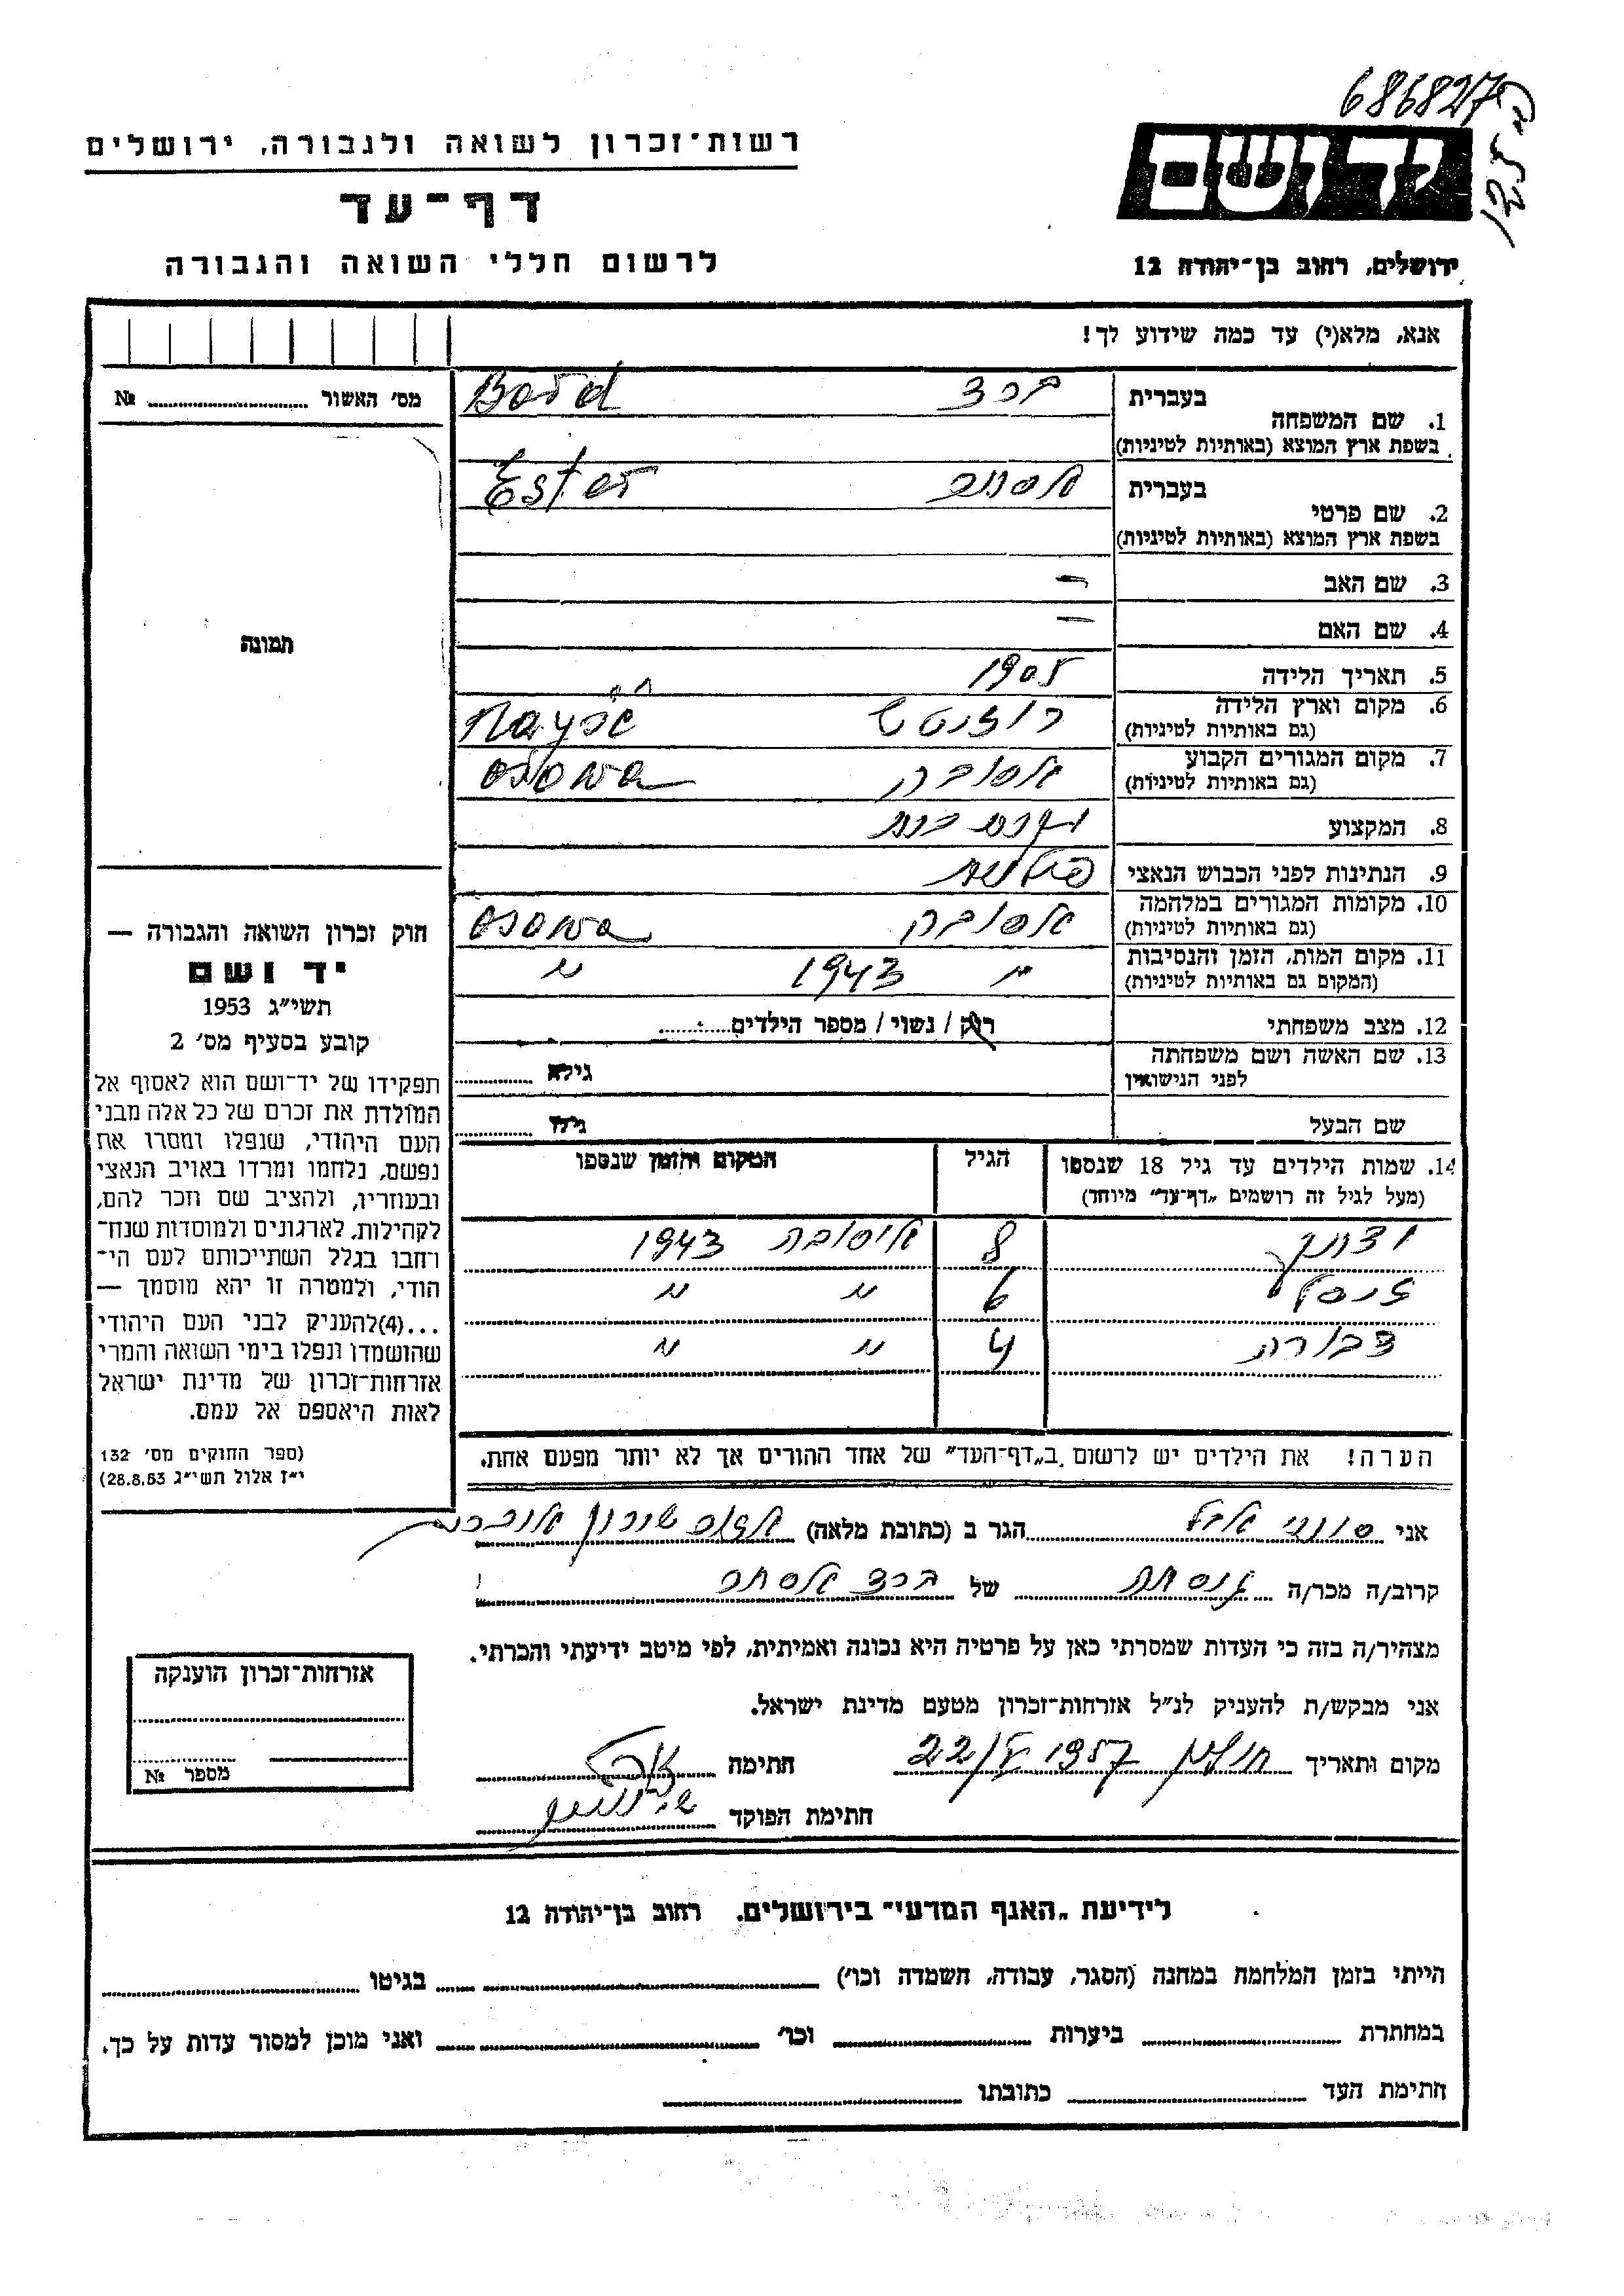 686827
רשות־זכרון לשואה ולגבורה, ירושלים
דף־עד
לרשום חללי השואה והגבורה
יד ושם
ירושלים, רחוב בן־יהודה 12
אנא, מלא(י) עד כמה שידוע לך!
מס׳ האשור № 
1. שם המשפחה
בעברית ברד Bord
בשפת ארץ המוצא (באותיות לטיניות)
2. שם פרטי
בעברית Ester
בשפת ארץ המוצא (באותיות לטיניות)
3. שם האב –
4. שם האם –
5. תאריך הלידה 1905
6. מקום וארץ הלידה
(גם באותיות לטיניות)
7. מקום המגורים הקבוע Osowa
(גם באותיות לטיניות)
8. המקצוע עקרת בית
9. הנתינות לפני הכבוש הנאצי פולנית
10. מקומות המגורים במלחמה אסובה Osowa
(גם באותיות לטיניות)
11. מקום המות, הזמן והנסיבות " 1943 "
(המקום גם באותיות לטיניות)
12. מצב משפחתי רוק / נשוי / מספר הילדים
13. שם האשה ושם משפחתה
לפני הנישואין גילא
שם הבעל גילו
14. שמות הילדים עד גיל 18 שנספו הגיל המקום והזמן שנספו
(מעל לגיל זה רושמים „דף־עד״ מיוחד)
8 אוסובה 1943
6 " "
דבורה 4 " "
הערה! את הילדים יש לרשום ב„דף־העד״ של אחד ההורים אך לא יותר מפעם אחת.
תמונה
חוק זכרון השואה והגבורה —
יד ושם
תשי״ג 1953
קובע בסעיף מס׳ 2
תפקידו של יד־ושם הוא לאסוף אל
המולדת את זכרם של כל אלה מבני
העם היהודי, שנפלו ומסרו את
נפשם, נלחמו ומרדו באויב הנאצי
ובעוזריו, ולהציב שם וזכר להם,
לקהילות, לארגונים ולמוסדות שנח־
רחבו בגלל השתייכותם לעם הי־
הודי, ולמטרה זו יהא מוסמך —
...(4)להעניק לבני העם היהודי
שהושמדו ונפלו בימי השואה והמרי
אזרחות־זכרון של מדינת ישראל
לאות היאספם אל עמם.
(ספר החוקים מס׳ 132
י״ז אלול תשי״ג 28.8.53)
אני הגר ב (כתובת מלאה)
קרוב/ה מכר/ה גיסתה של ברד אסתר
מצהיר/ה בזה כי העדות שמסרתי כאן על פרטיה היא נכונה ואמיתית, לפי מיטב ידיעתי והכרתי.
אני מבקש/ת להעניק לנ״ל אזרחות־זכרון מטעם מדינת ישראל.
מקום ותאריך חולון 1957 חתימה
חתימת הפוקד
אזרחות־זכרון הוענקה
מספר №
לידיעת „האגף המדעי״ בירושלים, רחוב בן־יהודה 12
הייתי בזמן המלחמה במחנה (הסגר, עבודה, השמדה וכו׳) בגיטו
במחתרת ביערות וכו׳ ואני מוכן למסור עדות על כך.
חתימת העד כתובתו